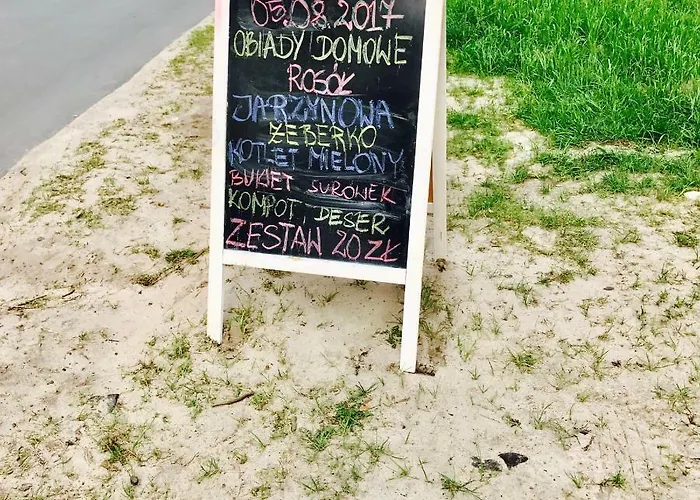 05.08.2017
OBIADY DOMOWE
ROSÓŁ
JARZYNOWA
ŻEBERKO
KOTLET MIELONY
BUKIET SURÓWEK
KOMPOT, DESER
ZESTAW 20ZŁ